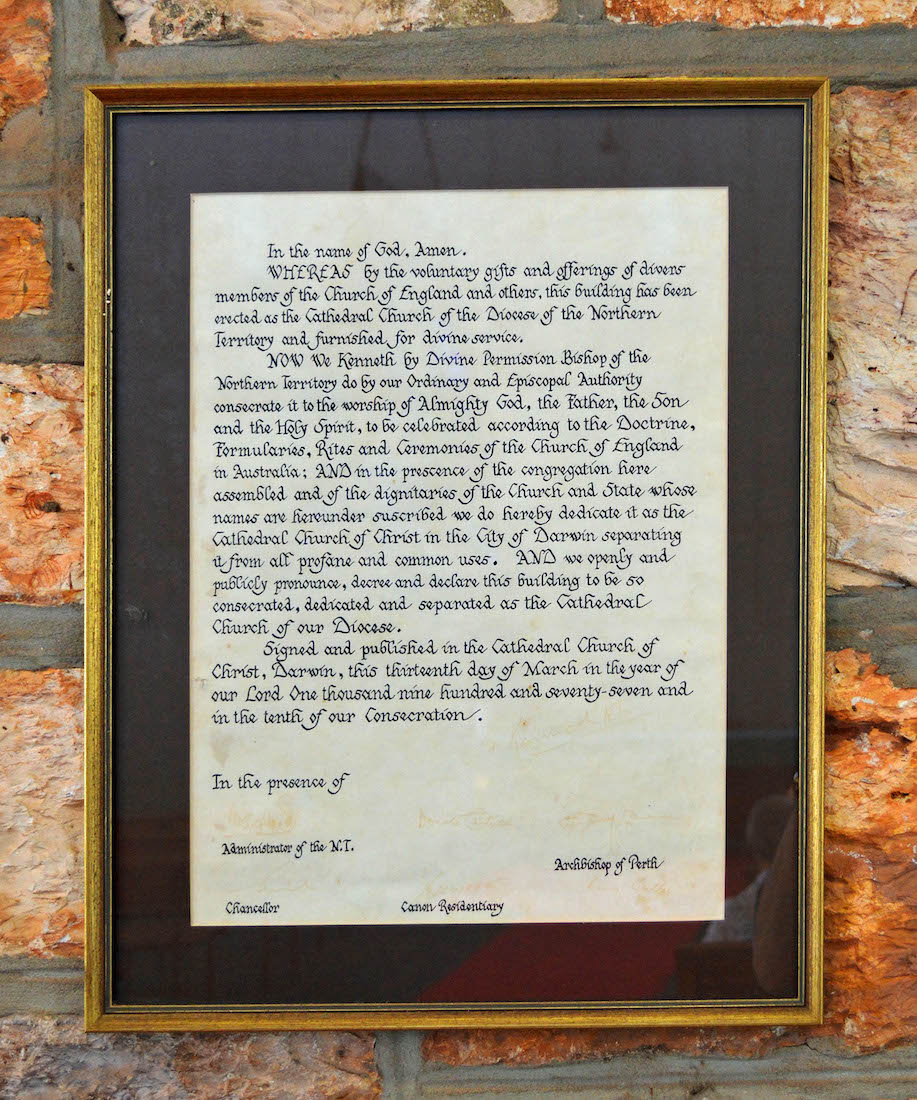 In the name of God, Amen.
WHEREAS by the voluntary gifts and offerings of divers
members of the Church of England and others, this building has been
erected as the Cathedral Church of the Diocese of the Northern
Territory and furnished for divine service.
NOW We Kenneth by Divine Permission Bishop of the
Northern Territory do by our Ordinary and Episcopal Authority
consecrate it to the worship of Almighty God, the Father, the Son
and the Holy Spirit, to be celebrated according to the Doctrine,
Formularies, Rites and Ceremonies of the Church of England
in Australia; AND in the prescence of the congregation here
assembled and of the dignitaries of the Church and State whose
names are hereunder suscribed we do hereby dedicate it as the
Cathedral Church of Christ in the City of Darwin separating
it from all profane and common uses. AND we openly and
publicly pronounce, decree and declare this building to be so
consecrated, dedicated and separated as the Cathedral
Church of our Diocese.
Signed and published in the Cathedral Church of
Christ, Darwin, this thirteenth day of March in the year of
our Lord One thousand nine hundred and seventy-seven and
in the tenth of our Consecration.
In the presence of
Administrator of the N.T.
Archbishop of Perth
Chancellor
Canon Residentiary